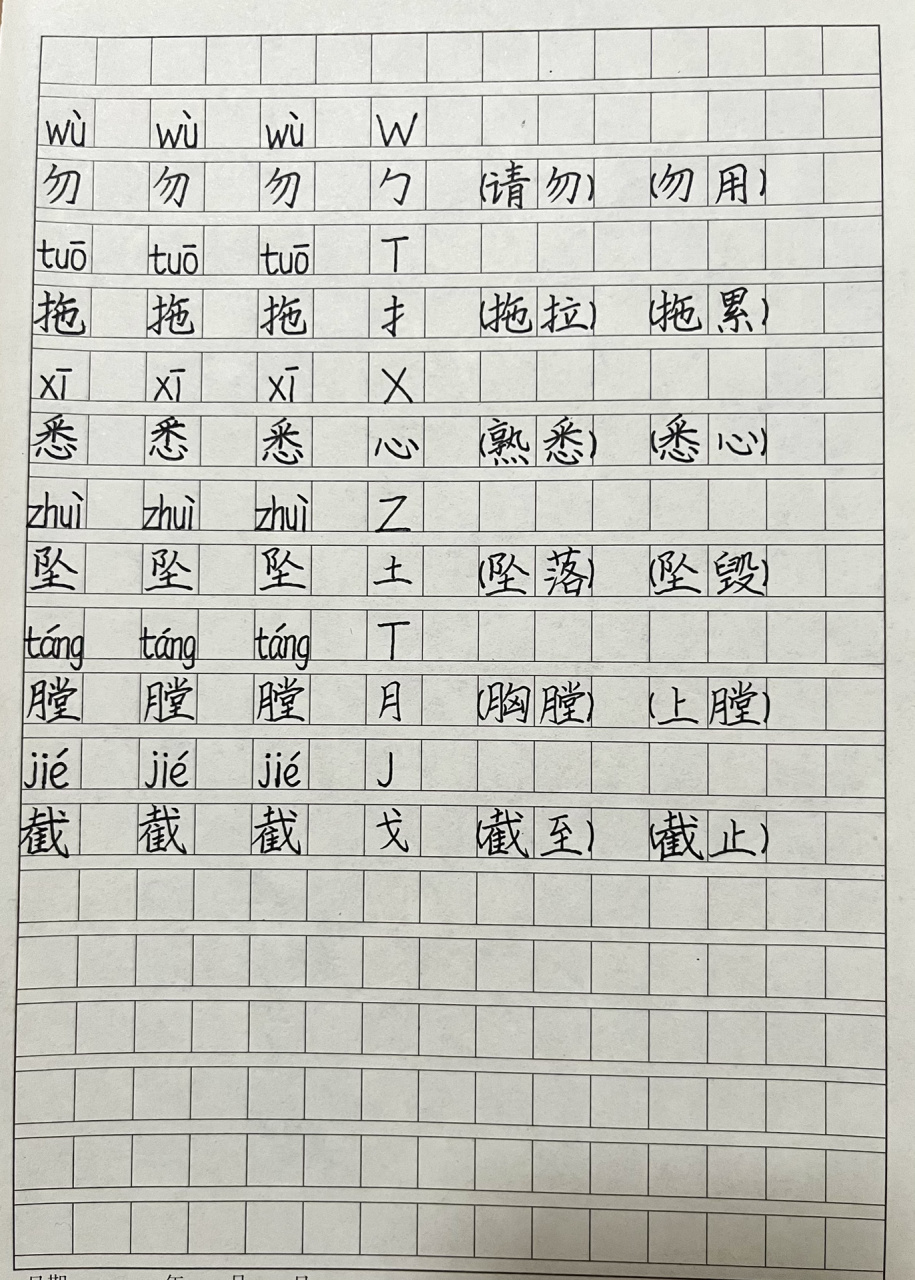 wù wù wù W
勿 勿 勿 勹 (请勿) (勿用)
tuō tuō tuō T
拖 拖 拖 扌 (拖拉) (拖累)
xī xī xī X
悉 悉 悉 心 (熟悉) (悉心)
zhuì zhuì zhuì Z
坠 坠 坠 土 (坠落) (坠毁)
táng táng táng T
膛 膛 膛 月 (胸膛) (上膛)
jié jié jié J
截 截 截 戈 (截至) (截止)